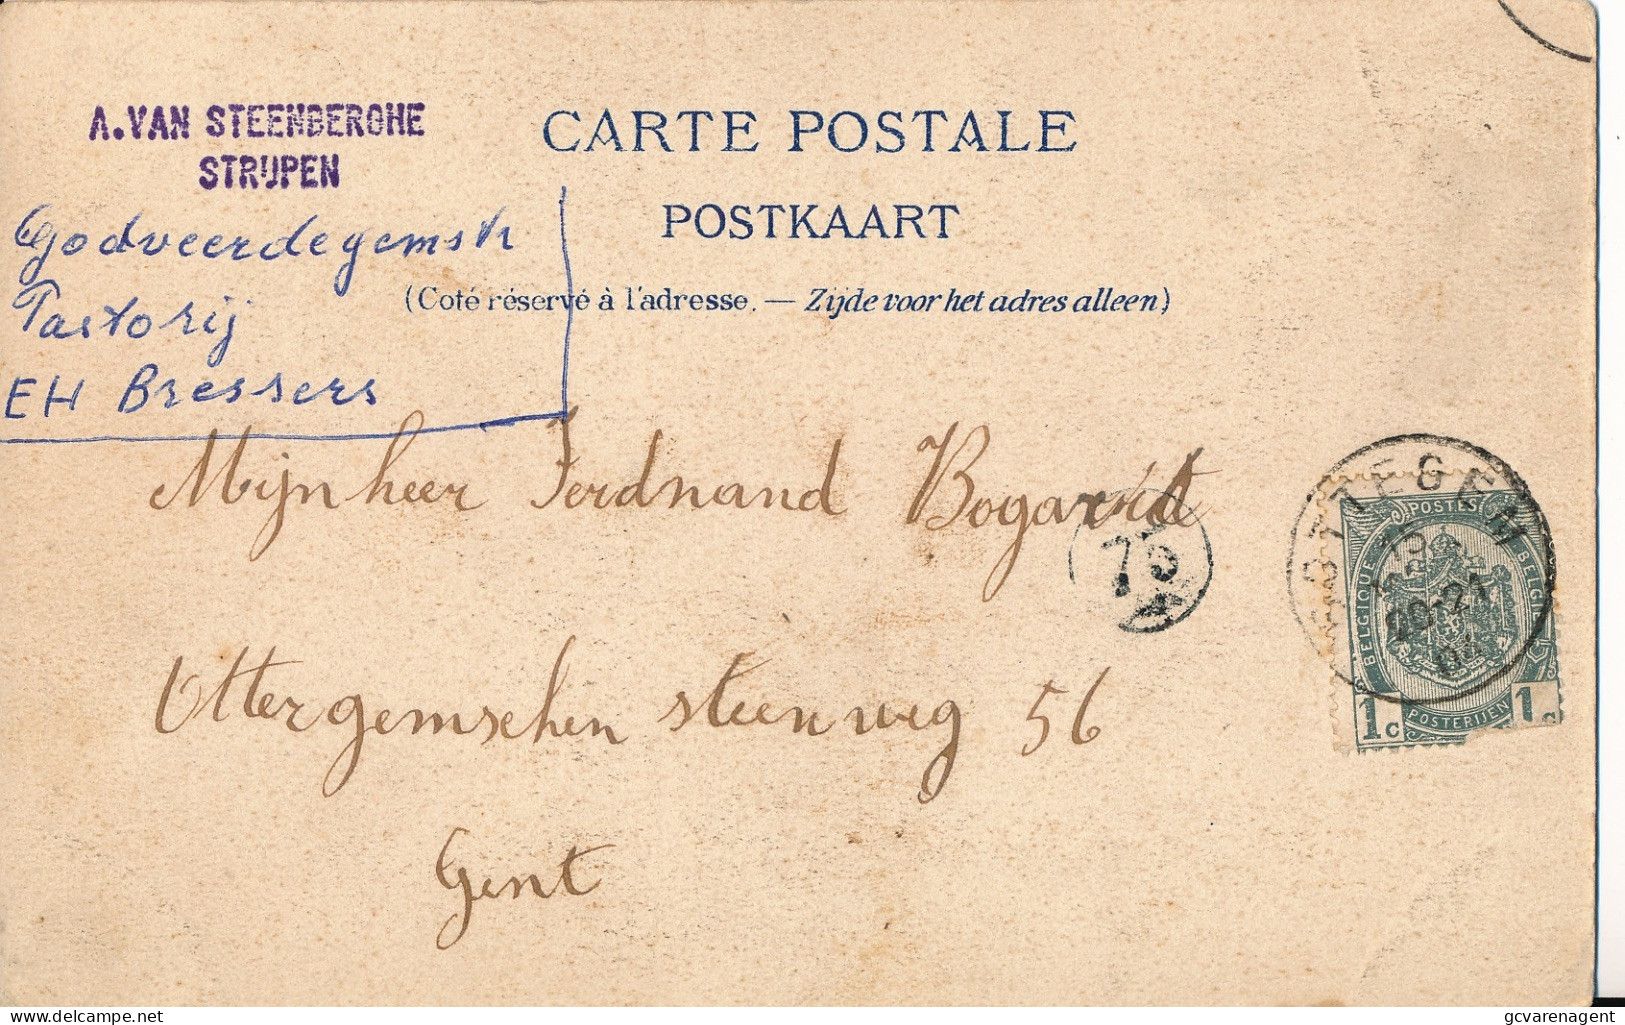 A. VAN STEENBERGHE
STRIJPEN
CARTE POSTALE
POSTKAART
(Coté réservé à l'adresse. — Zijde voor het adres alleen)
Godveerdegemstr
Pastorij
EH Bressers
Mijnheer Ferdnand
75
OTTEGEM
20-21
04
POSTES
BELGIQUE
BELGIË
POSTERIJEN
1c
1c
Ottergemschen steenweg 56
Gent
delcampe.net
gcvarenagent